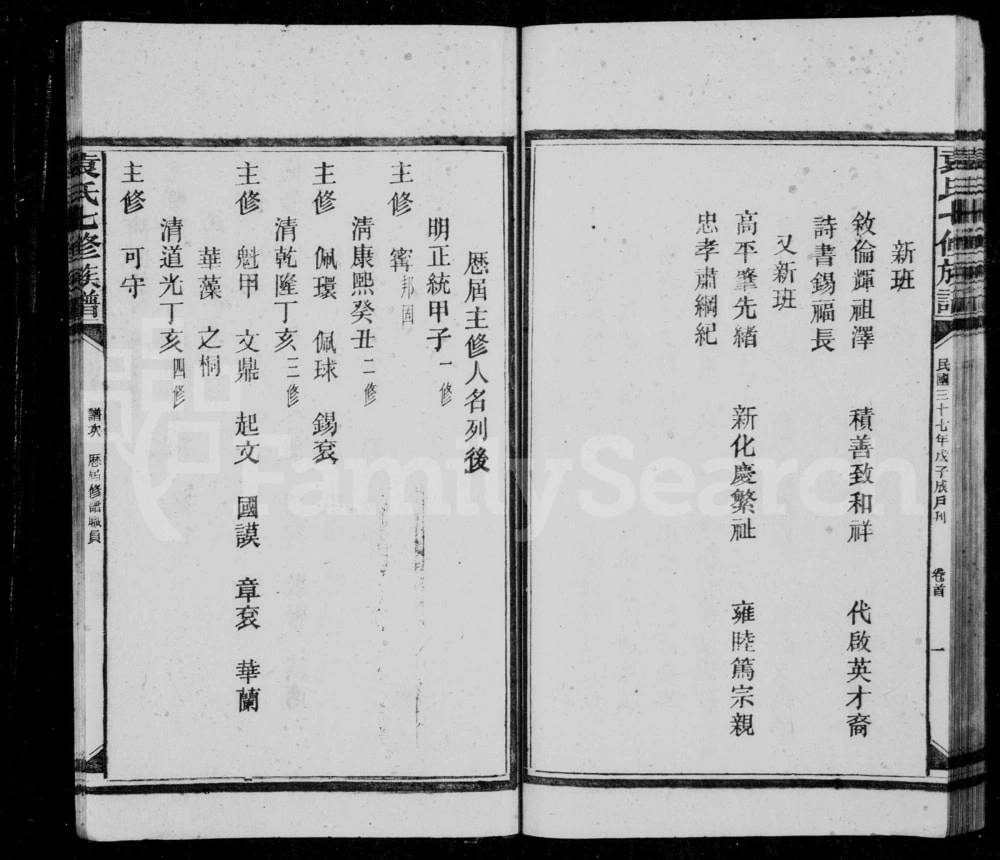 袁氏七修族譜
民國三十七年戊子成戶刊
卷首
一
新班
敘倫輝祖澤 積善致和祥 代啟英才裔
詩書錫福長
又新班
高平肇先緒 新化慶繁祉 雍睦篤宗親
忠孝肅綱紀
歷屆主修人名列後
明正統甲子 一修
主修 寗邦固
清康熙癸丑 二修
主修 佩環 佩球 錫袞
清乾隆丁亥 三修
主修 魁甲 文鼎 起文 國謨 章袞 華蘭
華藻 之桐
清道光丁亥 四修
主修 可守
袁氏七修族譜
譜次 歷屆修譜職員
FamilySearch